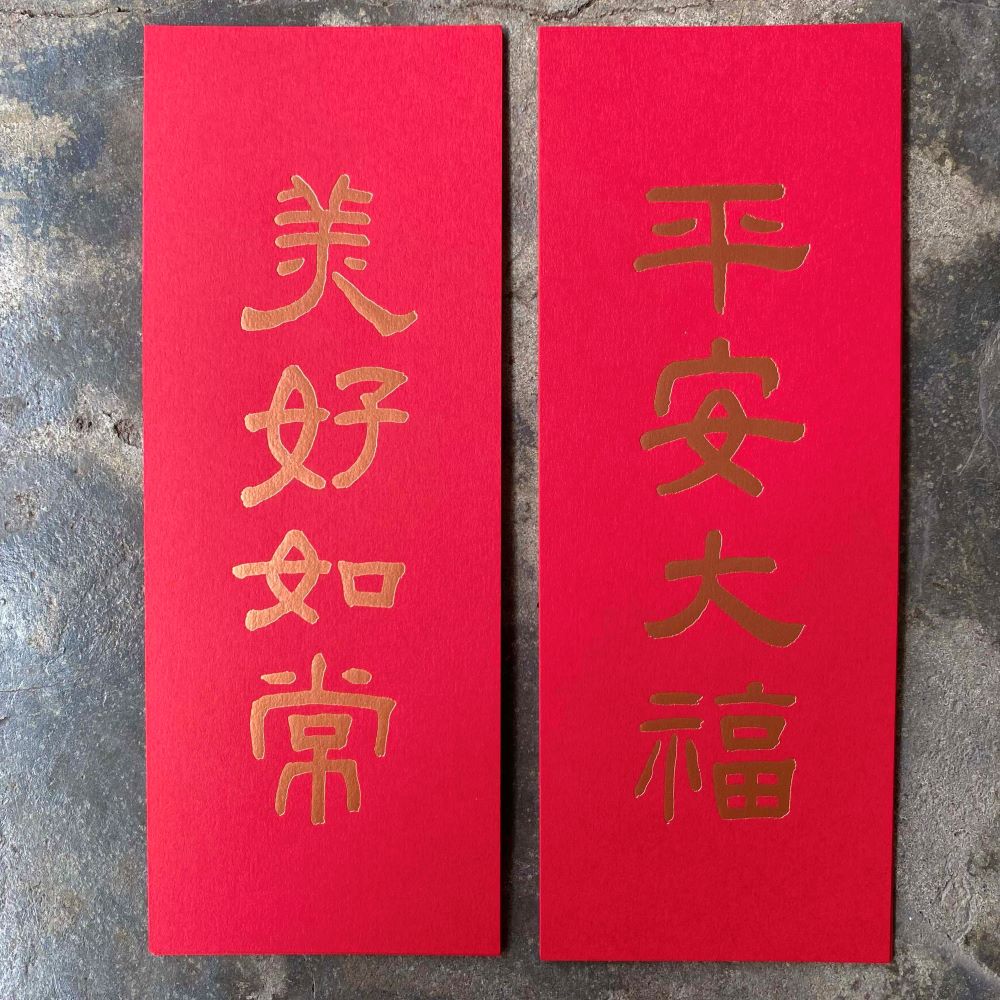 美好如常
平安大福